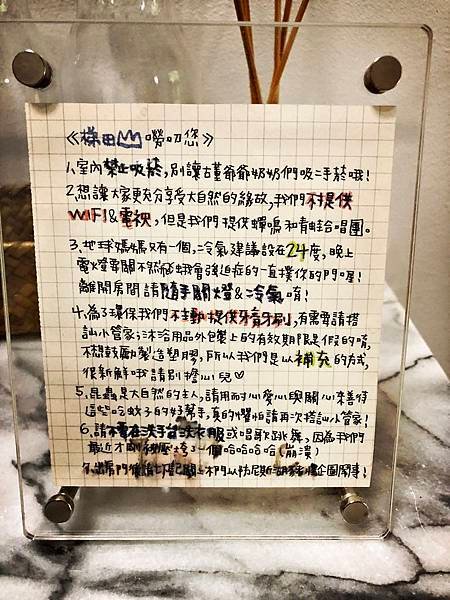 《梯田山 嘮叨您》
1.室內禁止吸菸,別讓古董爺爺奶奶們吸二手菸哦!
2.想讓大家更充分享受大自然的緣故,我們不提供
WIFI&電視,但是我們提供蟬鳴和青蛙合唱團。
3.地球媽媽只有一個,冷氣建議設在24度,晚上
電燈要關不然飛蛾會強迫症的一直撲你的門喔!
離開房間請隨手關燈&冷氣唷!
4.為了環保我們不主動提供牙膏牙刷,有需要請搭
訕小管家;沐浴用品外包裝上的有效期限是假的唷,
不想鼓勵製造塑膠,所以我們是以補充的方式,
很新鮮哦請別擔心兒♡
5.昆蟲是大自然的主人,請用耐心愛心與關心來善待
這些吃蚊子的好幫手,真的懼怕請再次搭訕小管家!
6.請不要在洗手台洗衣服或唱歌跳舞,因為我們
最近才剛被壓垮了一個哈哈哈哈(崩潰)
7.出房門後請切記關上木門以防尼斯湖